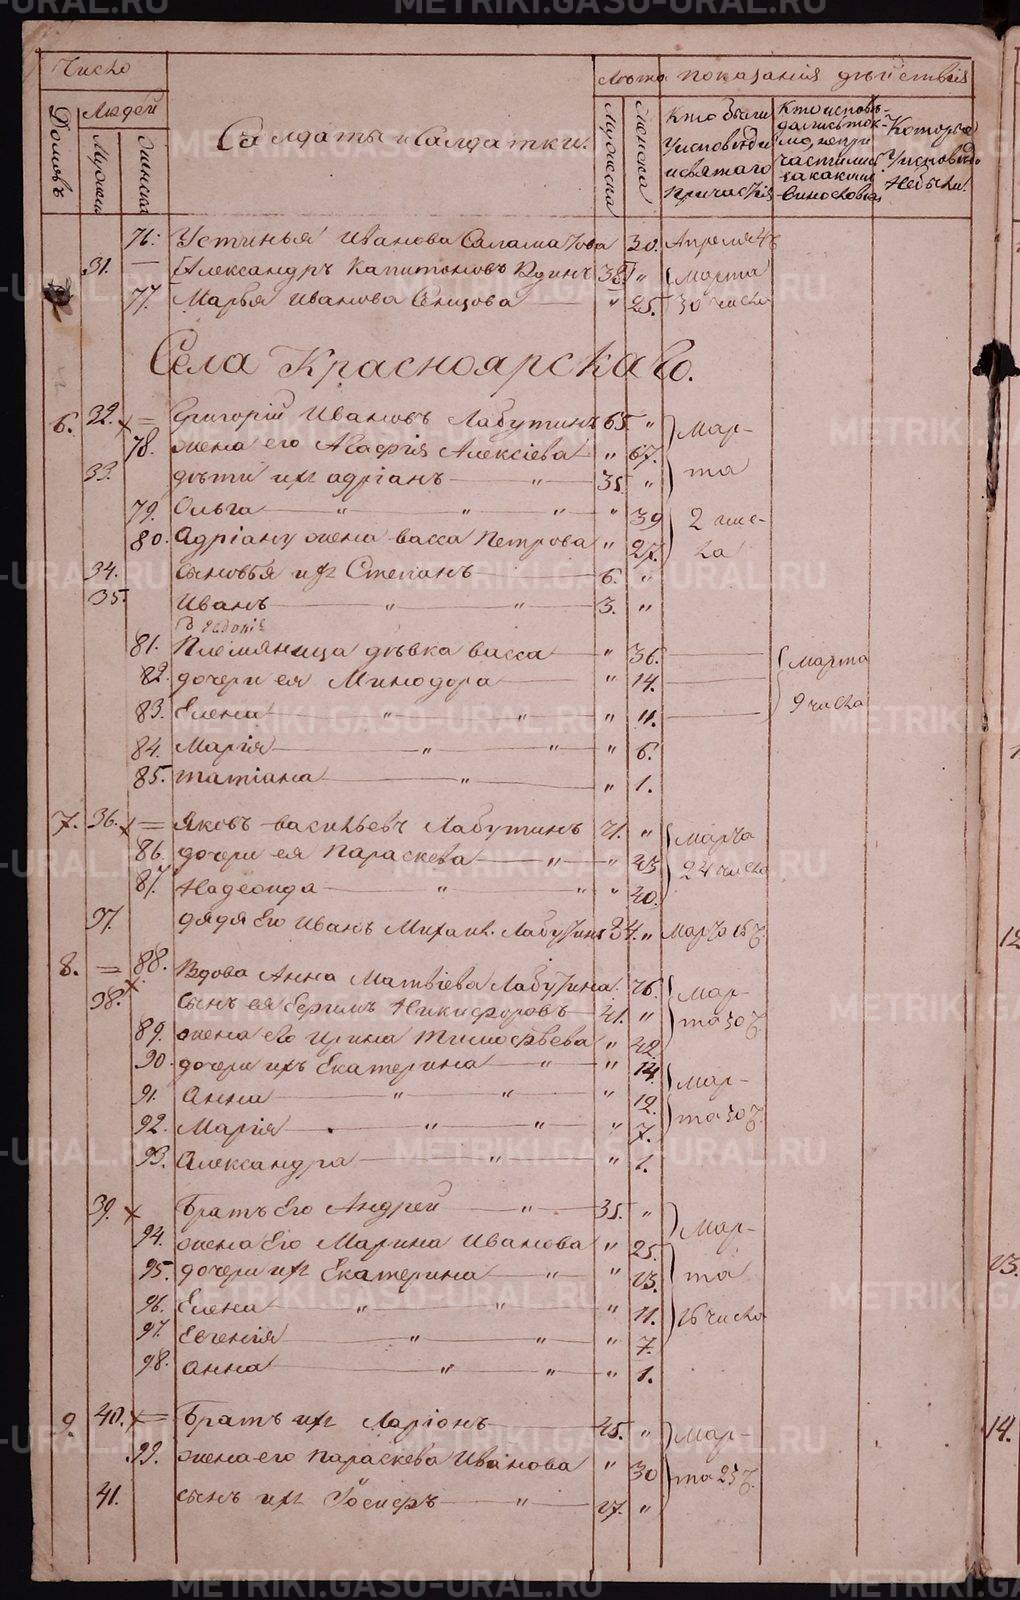 Число
Лѣта
показанія дѣйствія
Домовъ
Людей
Мужеск
Женска
Салдаты и Салдатки.
Мужеска
Женска
Кто были
у исповѣди
и святаго
причастія
Кто исповѣ-
дались ток-
мо, не при
частились
за какими
винословіи
Которые
у исповѣди
не были.
76. Устинья Иванова Саламатова 30. Апреля 4 ч
31. — Александръ Капитоновъ Вдинъ 38 " Марта
77. Марья Иванова Сенцова — " 25. 30 числа
Села Красноярскаго.
6. 32. х = Григорій Ивановъ Лабутинъ 65. " Мар-
78. жена его Агафія Алексіева " 67.
33. дѣти ихъ Адріанъ — " — 35. " та
79. Ольга — " " " — " 39 2 чис-
80. Адріану жена Васса Петрова " 27. ла
34. сыновья ихъ Степанъ — 6. "
35. Иванъ — " — " — 3. "
81. Племяница дѣвка Васса — " 36. — Марта
82. дочери ея Минодора — " 14. —
83. Елена — " — " — " 11. — 9 числа
84. Марія — " — " — " 6.
85. Татіана — " — " 1.
7. 36. х = Яковъ Васильевъ Лабутинъ 71. " Марта
86. дочери ея Параскева — " — " 43 24 числа
87. Надежда — " — " " 20.
37. дядя Его Иванъ Михаил. Лабутинъ 84. " Марта 16 ч
8. = 88. Вдова Анна Матвіева Лабутина. 76. Мар-
38. х сынъ ея Ефимъ Никифоровъ — 41. " та 30 ч
89. жена его Ирина Тимофѣева " 42.
90. дочери ихъ Екатерина — " — " 14. Мар-
91. Анна — " — " — " 12.
92. Марія — " — " — " 7. та 30 ч.
93. Александра — " — " 1.
39. х Братъ Его Андрей — " — 35. " Мар-
94. жена Его Марина Иванова " 25.
95. дочери ихъ Екатерина — " — " 13. та
96. Елена — " — " — " 11. 16 числа
97. Евгенія — " — " — " 7.
98. Анна — " — " — " 1.
9. 40. х = Братъ ихъ Ларіонъ — 45. " Мар-
99. жена его Параскева Иванова " 30 та 25 ч.
41. сынъ ихъ Іосифъ — " — 17. "
12
13.
14.
METRIKI.GASO-URAL.RU